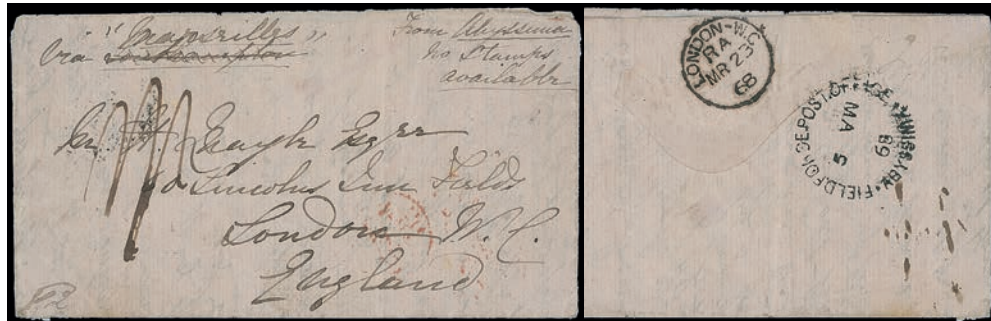 " Marseilles "
Via Southampton
From Abyssinia
No Stamps
available
Esqre
60 Lincolns Inn Fields
London W.C.
England
LONDON-W.C
RA
MR 23
68
FIELD FORCE POST OFFICE ABYSSINIA
MA
5
68